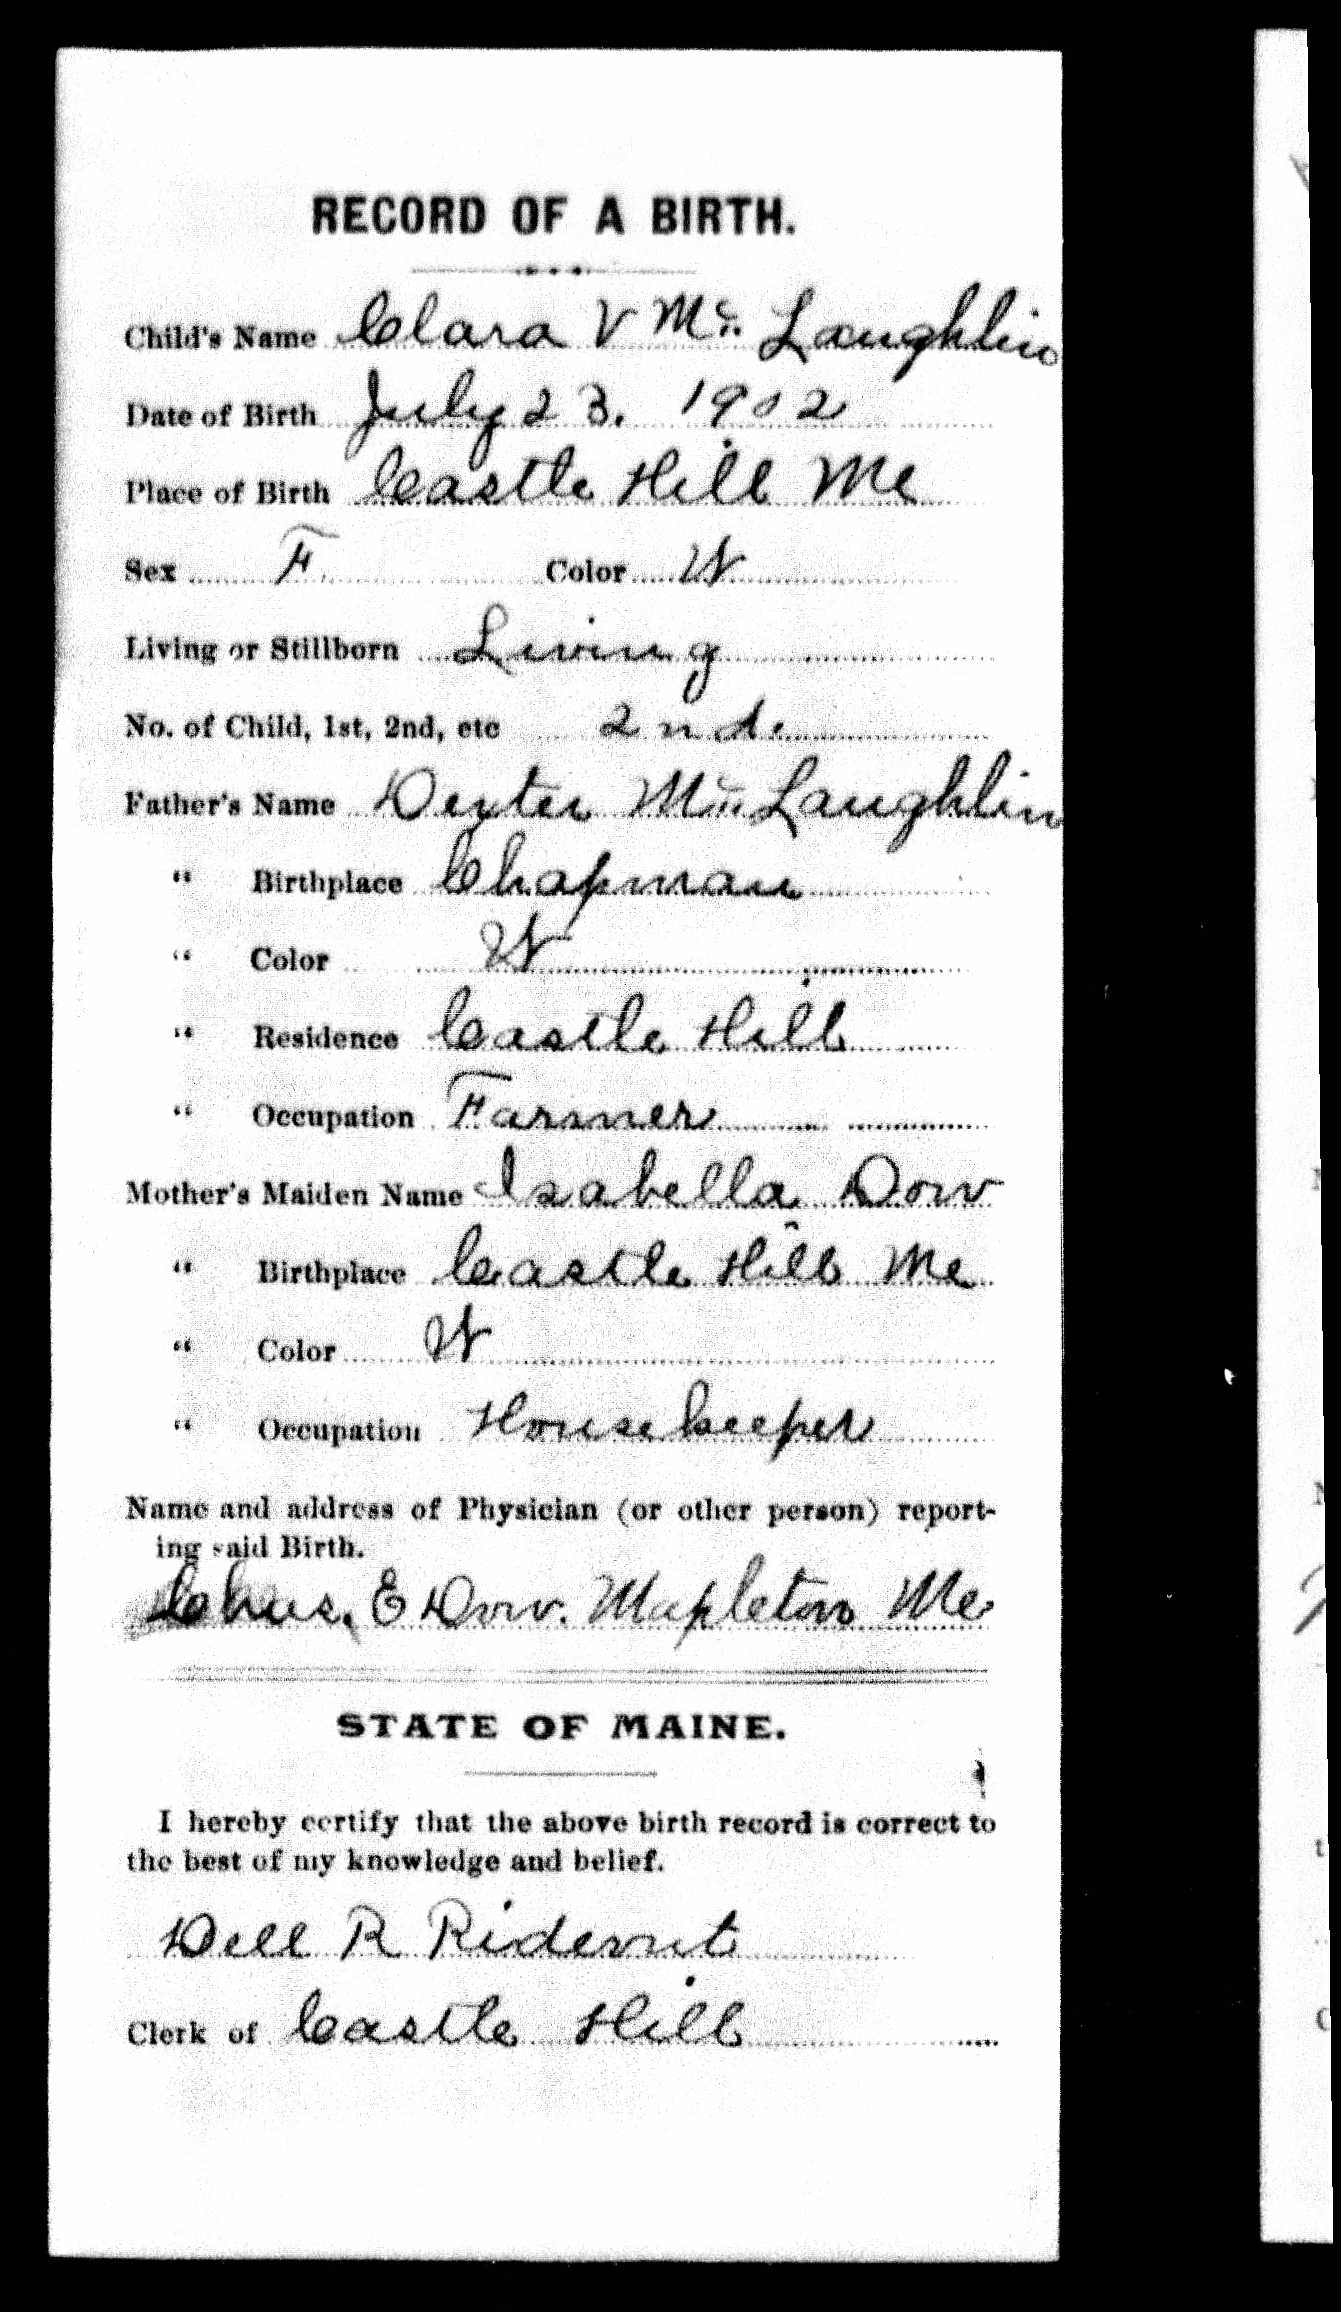 RECORD OF A BIRTH.
Child's Name Clara V Mc. Laughlin
Date of Birth July 23. 1902
Place of Birth Castle Hill Me
Sex F. Color W
Living or Stillborn Living
No. of Child, 1st, 2nd, etc 2nd.
Father's Name Dexter Mc. Laughlin
" Birthplace Chapman
" Color W
" Residence Castle Hill
" Occupation Farmer
Mother's Maiden Name Isabella Dow
" Birthplace Castle Hill Me
" Color W
" Occupation Housekeeper
Name and address of Physician (or other person) report-
ing said Birth.
E Dow. Mapleton Me
STATE OF MAINE.
I hereby certify that the above birth record is correct to
the best of my knowledge and belief.
Dell R Rideout
Clerk of Castle Hill